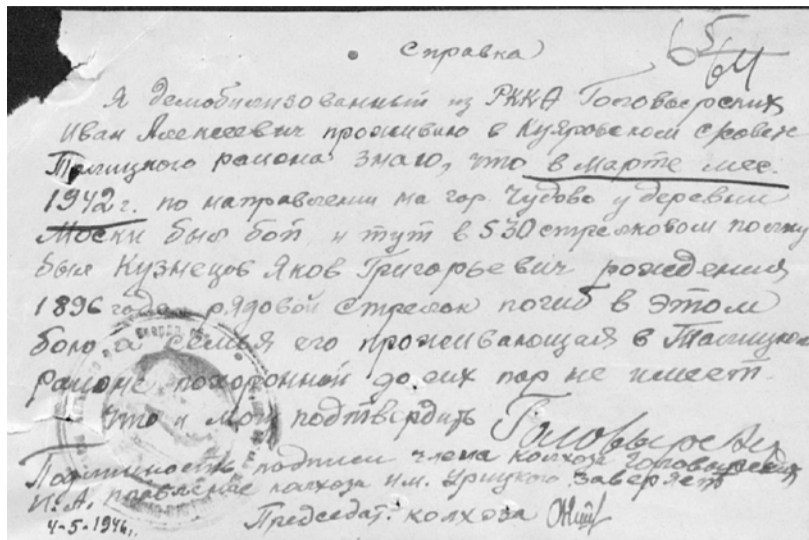 Справка
65/64
Я демобилизованный из РККА Головырских
Иван Алексеевич проживаю в Куяровском с/совете
Талицкого района знаю, что в марте мес.
1942 г. по направлении на гор. Чудово у деревни
Моски был бой и тут в 530 стрелковом полку
был Кузнецов Яков Григорьевич рождения
1896 года рядовой стрелок погиб в этом
бою а семья его проживающая в Талицком
районе похоронной до сих пор не имеет.
Что и могу подтвердить
Подлинность подписи члена колхоза Головырских
И. А. правление колхоза им. Урицкого заверяет
4-5-1946 г. Председат. колхоза